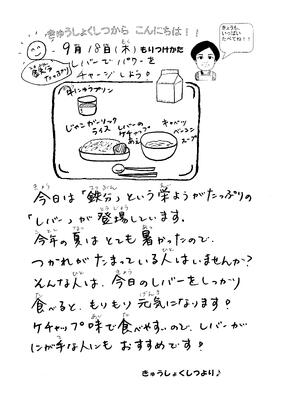 きゅうしょくしつから こんにちは！！
きょうも、
いっぱい
たべてね！！
9月18日(木) もりつけかた
鉄分
たっぷり
レバーで パワーを
チャージしよう！
牛にゅうプリン
じゃこガーリック
ライス
レバーの
ケチャップ
あえ
キャベツ
ベーコン
スープ
今日は「鉄分」という栄ようがたっぷりの
「レバー」が登場しています。
今年の夏はとても暑かったので、
つかれがたまっている人はいませんか？
そんな人は、今日のレバーをしっかり
食べると、もりもり元気になります！
ケチャップ味で食べやすいので、レバーが
にが手な人にもおすすめです！
きゅうしょくしつより♪